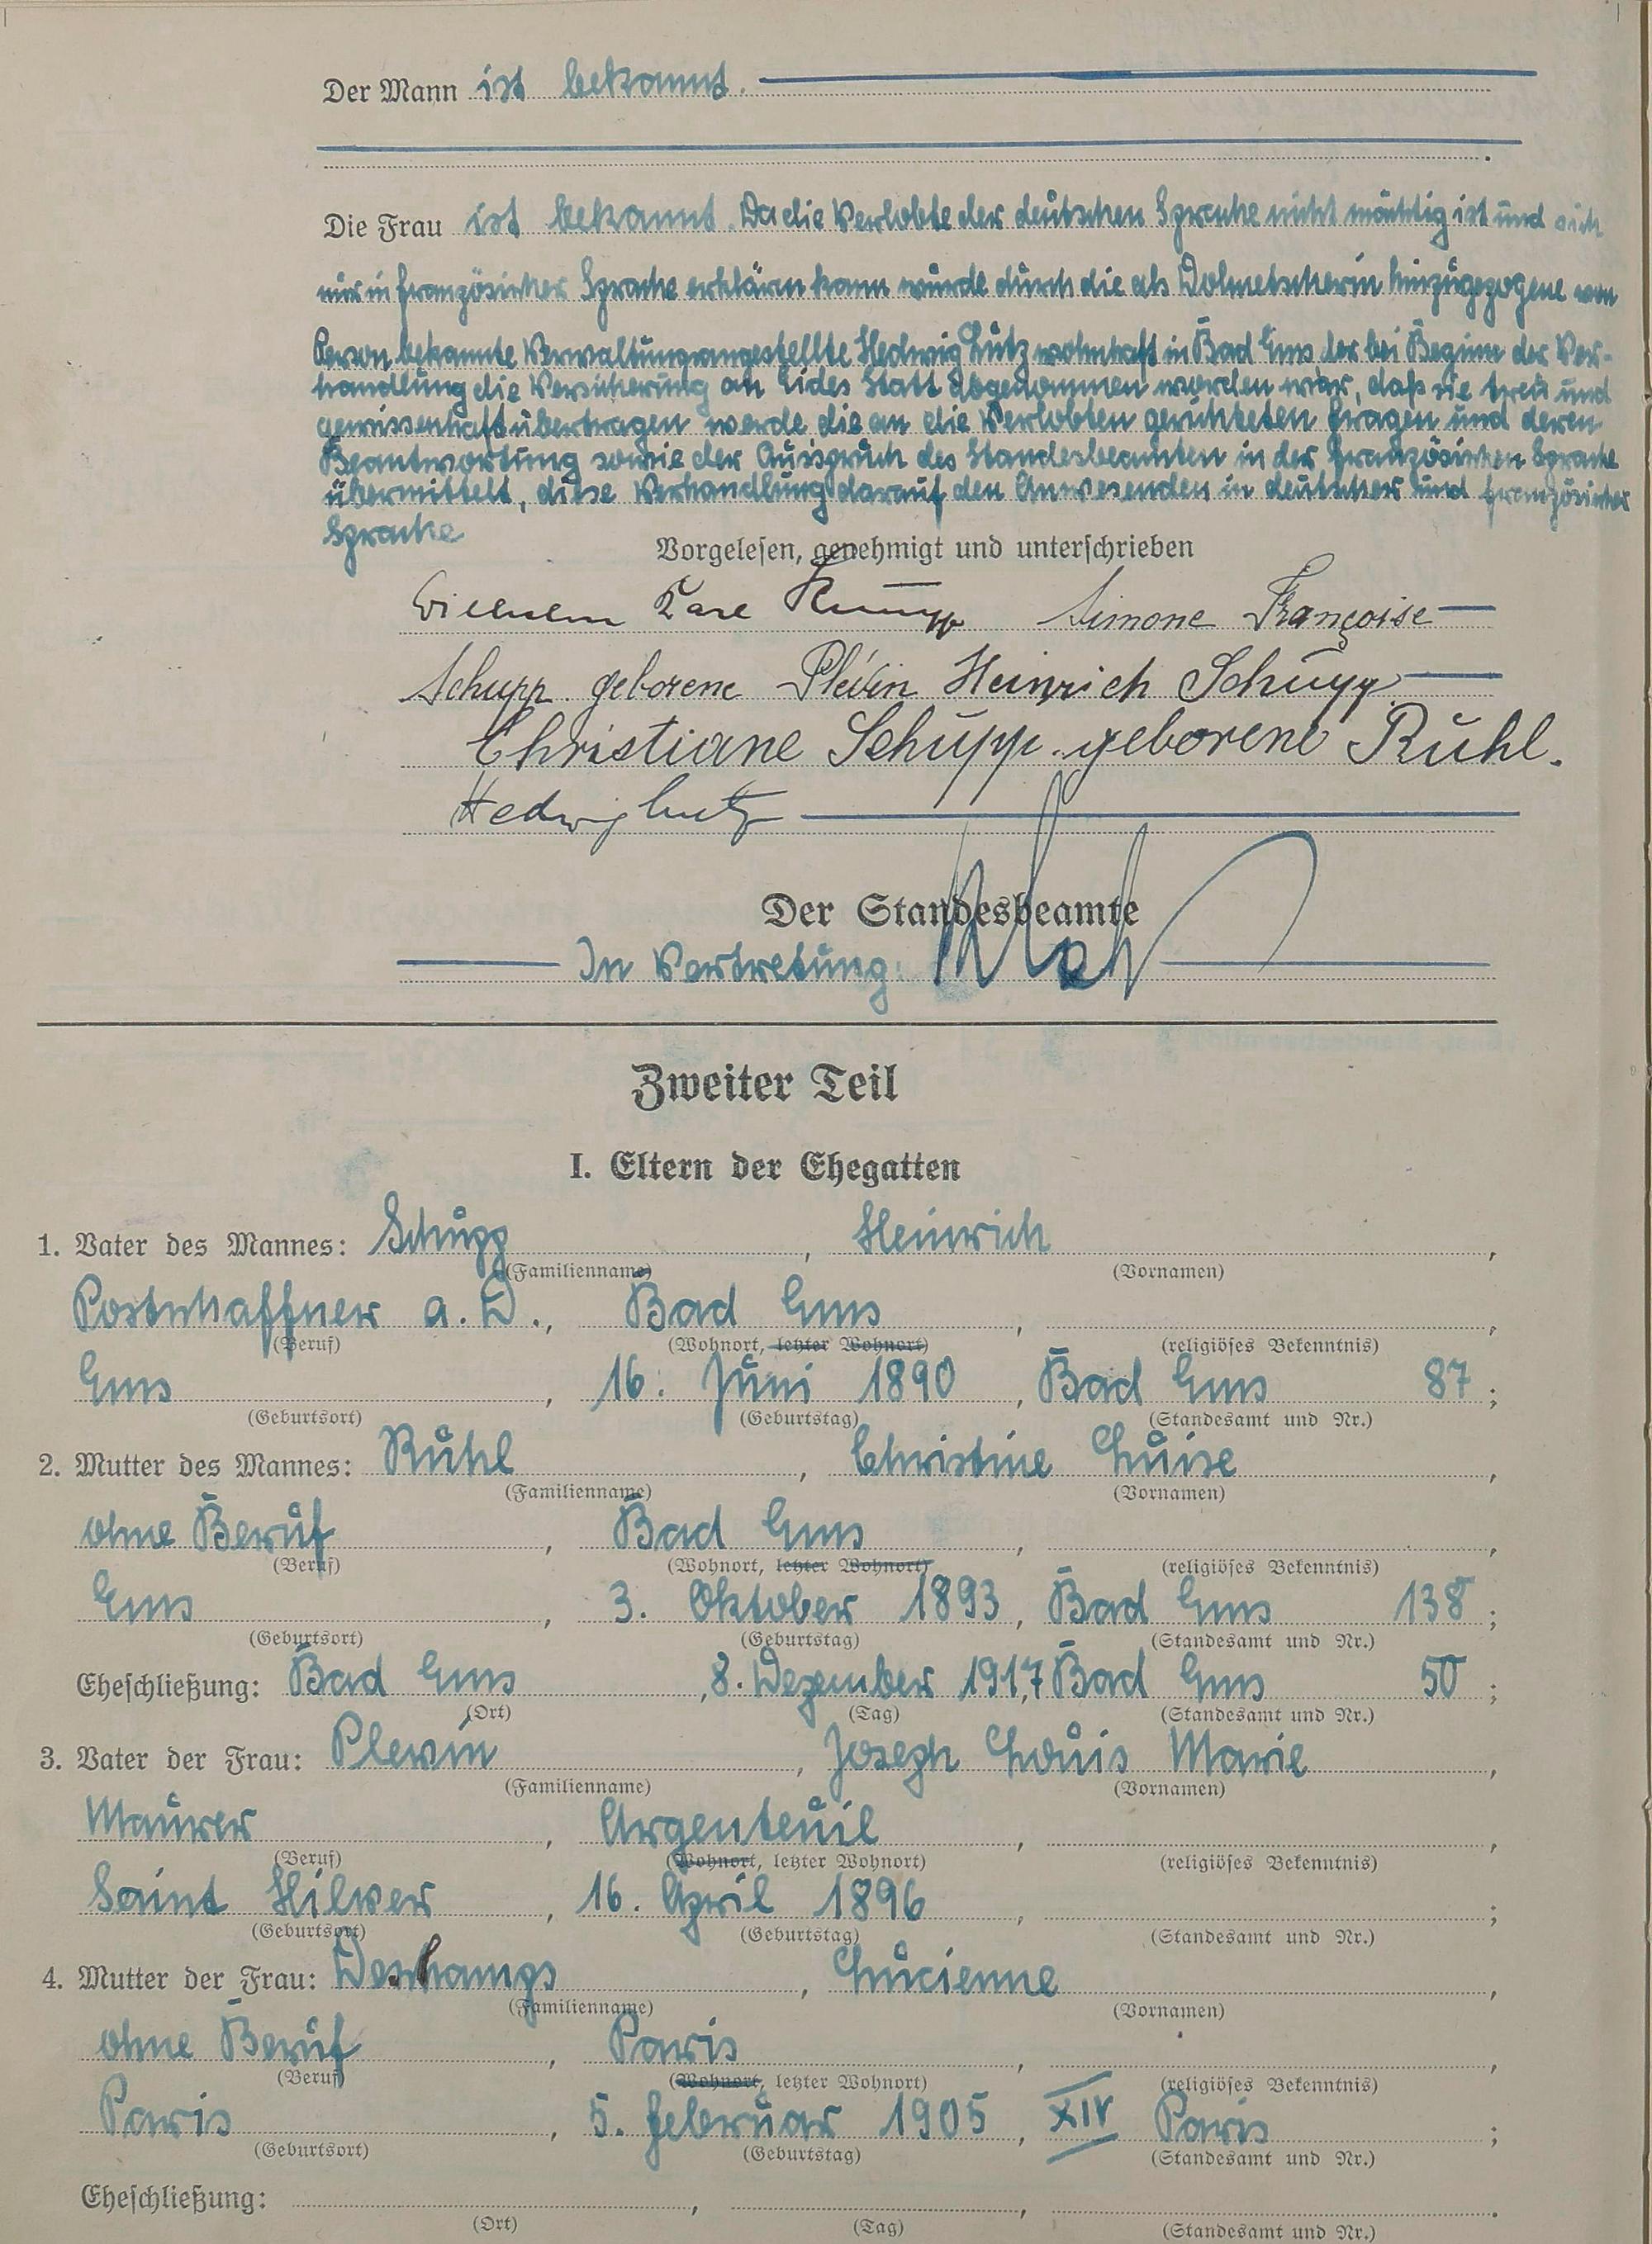 Der Mann ist bekannt.
Die Frau ist bekannt. Da die Verlobte der deutschen Sprache nicht mächtig ist und sich
nur in französischer Sprache erklären kann wurde durch die als Dolmetscherin hinzugezogene von
Person bekannte Verwaltungsangestellte Hedwig Lutz wohnhaft in Bad Ems der bei Beginn der Ver-
handlung die Versicherung an Eides Statt abgenommen worden war, daß sie treu und
gewissenhaft übertragen werde die an die Verlobten gerichteten Fragen und deren
Beantwortung sowie der Ausspruch des Standesbeamten in der französischen Sprache
übermittelt, diese Verhandlung darauf den Anwesenden in deutscher und französischer
Sprache
Vorgelesen, genehmigt und unterschrieben
Wilhelm Karl Simone Françoise
Schupp geborene Plévin Heinrich Schupp
Christiane Schupp geborene Rühl.
Hedwig Lutz
Der Standesbeamte
In Vertretung:
Zweiter Teil
I. Eltern der Ehegatten
1. Vater des Mannes: Schupp, Heinrich,
(Familienname) (Vornamen)
Postschaffner a. D., Bad Ems, ,
(Beruf) (Wohnort, letzter Wohnort) (religiöses Bekenntnis)
Ems, 16. Juni 1890, Bad Ems 87;
(Geburtsort) (Geburtstag) (Standesamt und Nr.)
2. Mutter des Mannes: Rühl, Christine Luise,
(Familienname) (Vornamen)
ohne Beruf, Bad Ems, ,
(Beruf) (Wohnort, letzter Wohnort) (religiöses Bekenntnis)
Ems, 3. Oktober 1893, Bad Ems 138;
(Geburtsort) (Geburtstag) (Standesamt und Nr.)
Eheschließung: Bad Ems, 8. Dezember 1917, Bad Ems 50;
(Ort) (Tag) (Standesamt und Nr.)
3. Vater der Frau: Plevin, Joseph Louis Marie,
(Familienname) (Vornamen)
Maurer, Argenteuil, ,
(Beruf) (Wohnort, letzter Wohnort) (religiöses Bekenntnis)
Saint Hilver, 16. April 1896, ;
(Geburtsort) (Geburtstag) (Standesamt und Nr.)
4. Mutter der Frau: Deshamps, Lucienne,
(Familienname) (Vornamen)
ohne Beruf, Paris, ,
(Beruf) (Wohnort, letzter Wohnort) (religiöses Bekenntnis)
Paris, 5. Februar 1905, XIV Paris;
(Geburtsort) (Geburtstag) (Standesamt und Nr.)
Eheschließung: , , .
(Ort) (Tag) (Standesamt und Nr.)